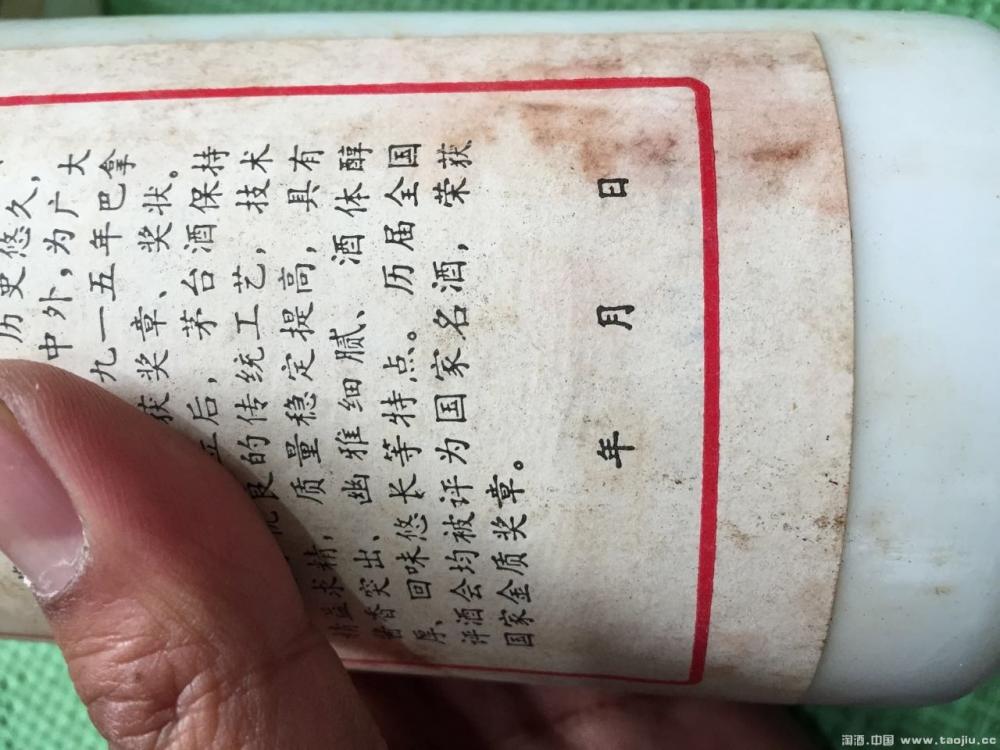 历史悠久,
中外,为广大
九一五年巴拿
获奖章、奖状。
后,茅台酒保持
良的传统工艺,技术
精益求精,质量稳定提高,具有
酱香突出、幽雅细腻、酒体醇
厚、回味悠长等特点。历届全国
评酒会均被评为国家名酒,荣获
国家金质奖章。
年 月 日
淘酒.中国 www.taojiu.cc